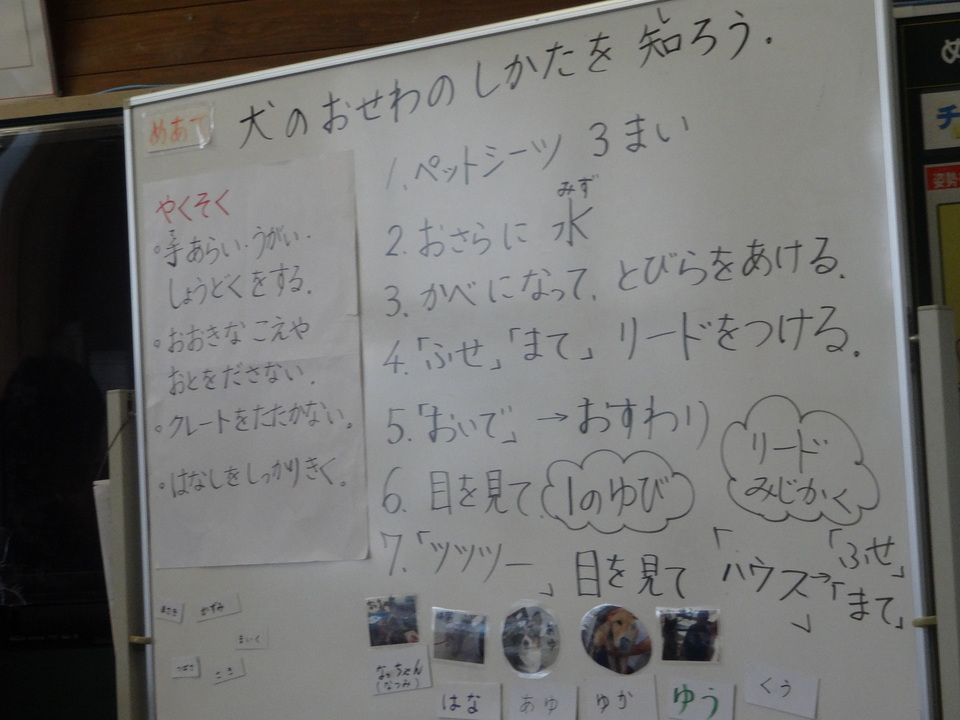 めあて
犬のおせわのしかたを知ろう.
し
やくそく
•手あらい・うがい・
て
しょうどくをする.
•おおきなこえや
おとをださない.
•クレートをたたかない。
•はなしをしっかりきく。
1.ペットシーツ 3まい
みず
2.おさらに 水
3.かべになって、とびらをあける.
4.「ふせ」「まて」 リードをつける.
5.「おいで」→おすわり
リード
みじかく
6.目を見て 1のゆび
7.「ツツツー」 目を見て 「ハウス」→「ふせ」
「まて」
なっちゃん
(なつみ)
はな
あゆ
ゆか
ゆう
くう
め
チ
姿勢